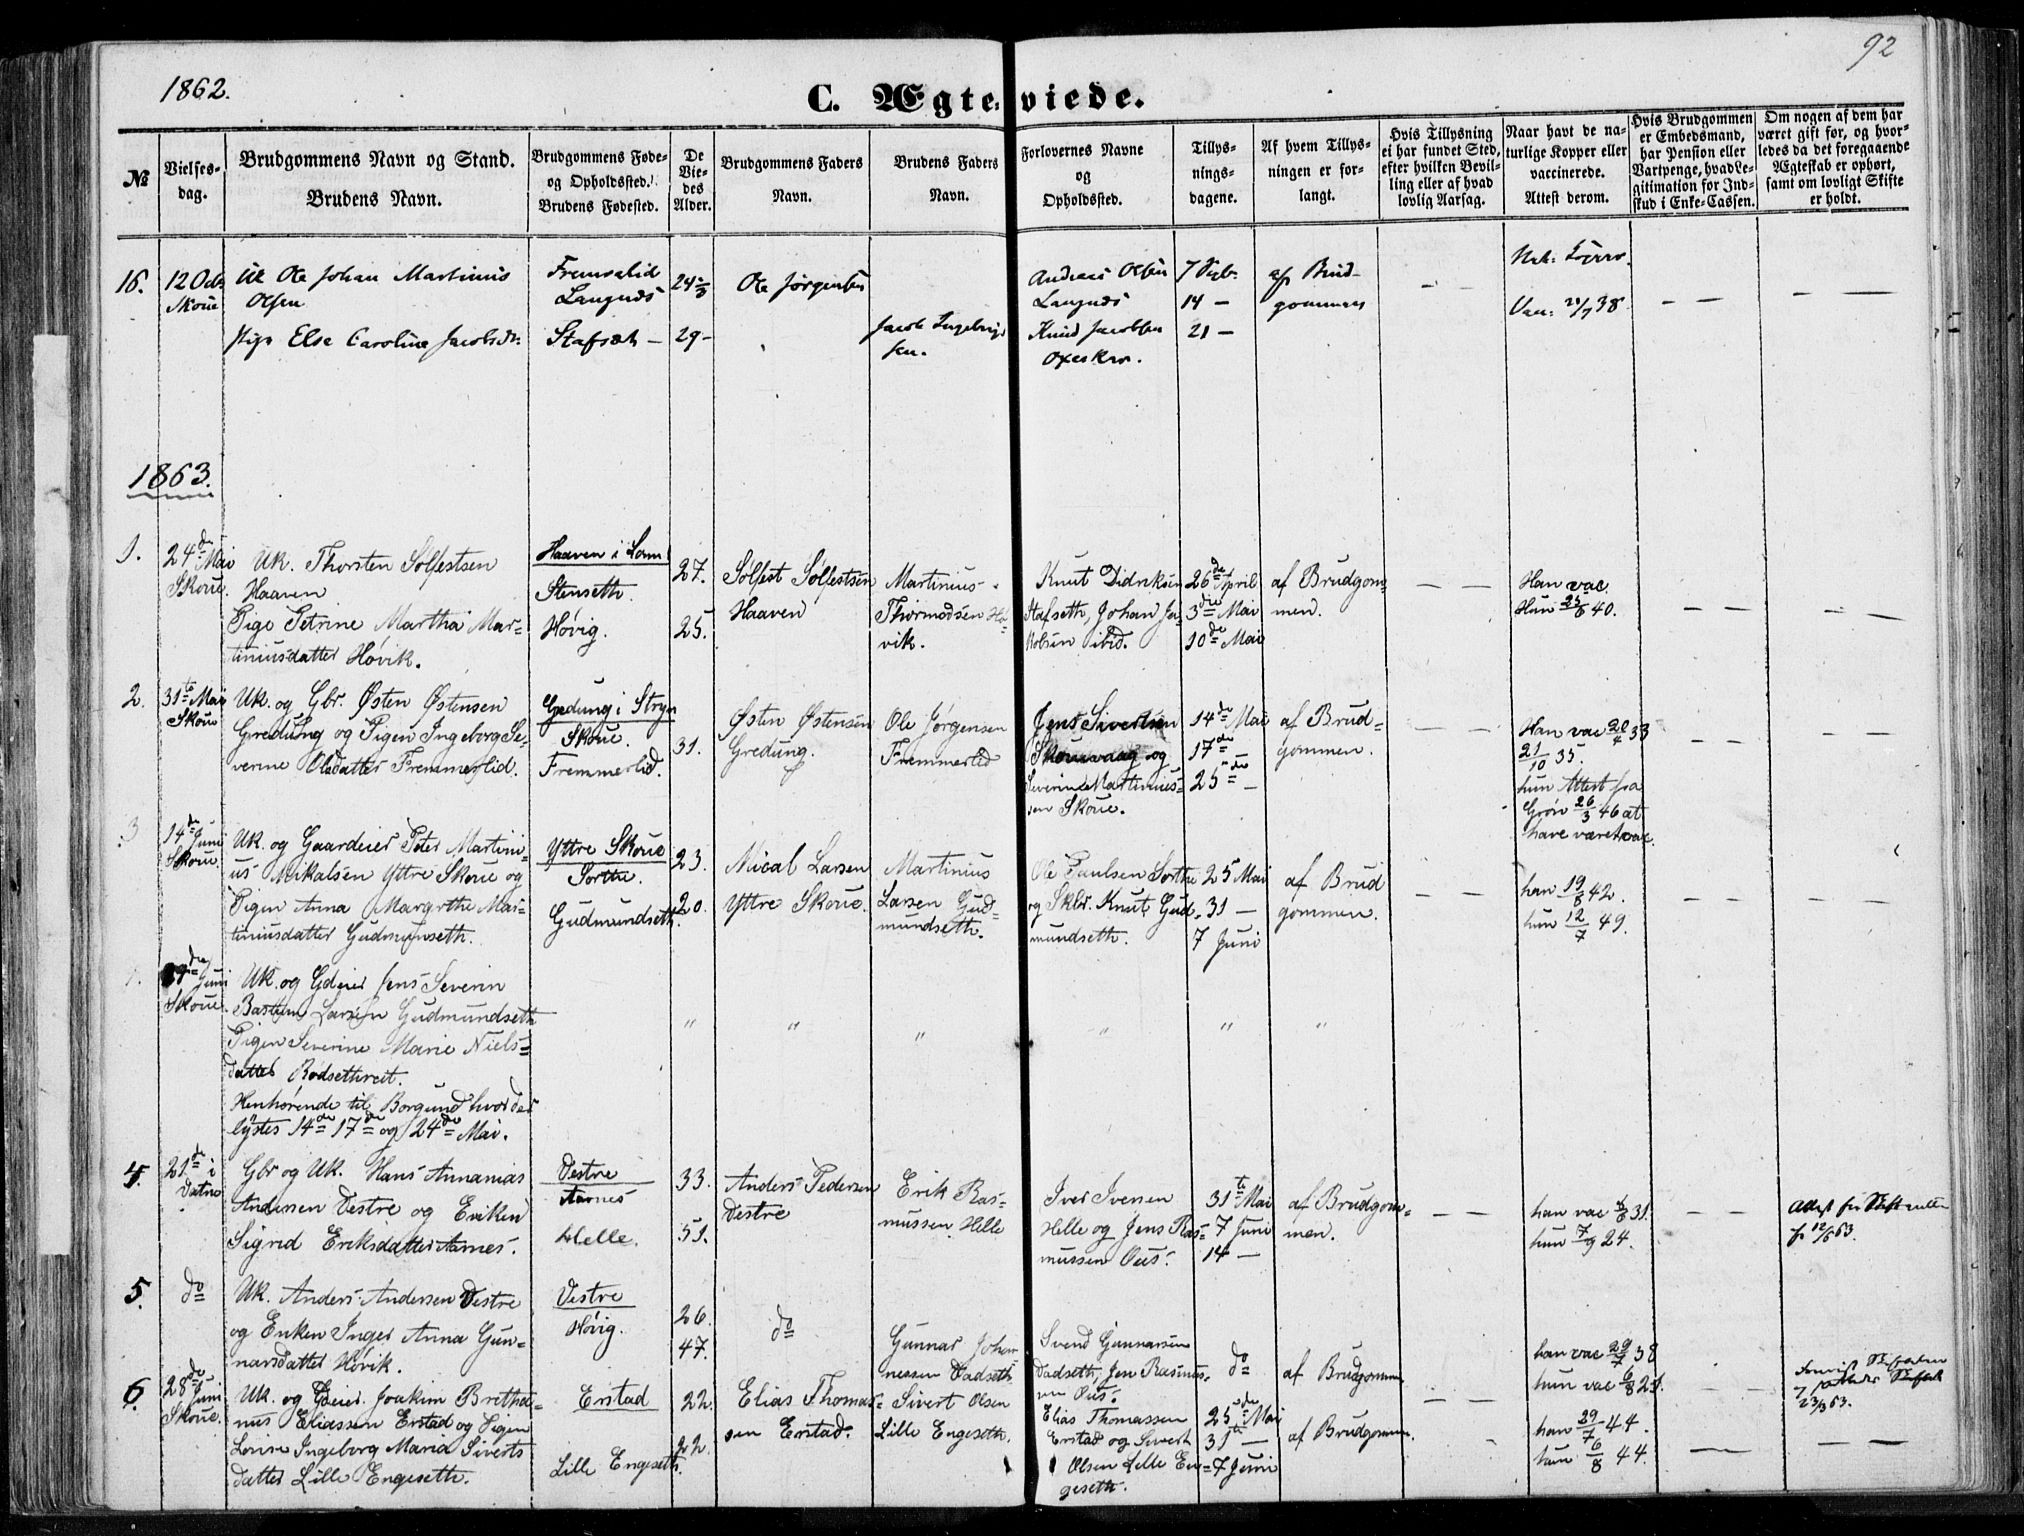 1862.
92
C. Ægteviede.
No
Vielses-
dag.
Brudgommens Navn og Stand.
Brudens Navn.
Brudgommens Føde-
og Opholdssted.
Brudens Fødested.
De
Vie-
des
Alder.
Brudgommens Faders
Navn.
Brudens Faders
Navn.
Forlovernes Navne
og
Opholdssted.
Tillys-
nings-
dagene.
Af hvem Tillys-
ningen er for-
langt.
Hvis Tillysning
ei har fundet Sted,
efter hvilken Bevil-
ling eller af hvad
lovlig Aarsag.
Naar havt de na-
turlige Kopper eller
vaccinerede.
Attest derom.
Hvis Brudgommen
er Embedsmand,
har Pension eller
Vartpenge, hvad Le-
gitimation for Ind-
skud i Enke-Cassen.
Om nogen af dem har
været gift før, og hvor-
ledes da det foregaaende
Ægteskab er ophørt,
samt om lovligt Skifte
er holdt.
16.
12 Octb.
Skoue
Uk Ole Johan Martinius
Olsen
Pige Else Caroline Jacobsdr.
Fremerlid
Langnes
Stafseth –
29 –
Ole Jørgensen
Jacob Ingebrigt
sen.
Andreas Olsen
Langnes
Knud Jacobsen
7 Septb.
14 –
21 –
af Brud-
gommen
1863.
1.
24de Mai
Skoue.
Uk. Thorsten Sølfestsen
Haaven
Pige Petrine Martha Mar-
tiniusdatter Høvik.
Haaven i Lom
Stenseth.
Høvig.
27.
25.
Sølfest Sølfestsen
Haaven
Martinius
Thormodsen Hø-
vik.
Knut Didriksen
Stafseth, Johan Ja-
kobsen ibid.
26de April
3die Mai
10de Mai
af Brudgom-
men.
Han vac.
Hun 25/6 40.
2.
31te Mai
Skoue
Uk. og Gbr. Østen Østensen
Gredung og Pigen Ingeborg Se-
verine Olsdatter Fremmerlid.
Gredung i Stryn
Skoue.
Fremmerlid.
31.
Østen Østensen
Gredung.
Ole Jørgensen
Fremmerlid
Jens Sivertsen
Skouevaag og
Severin Martinius-
sen Skoue.
14de Mai
17de
25de –
af Brud-
gommen.
Han vac 20/4 33
21/10 35.
hun Attest fra
Grøn 26/3 46 at
have været vac.
3
14de Juni
Skoue.
Uk. og Gaardeier Peter Martini-
us Mikalsen Yttre Skoue og
Pigen Anna Margrthe Mar-
tiniusdatter Gudmunseth.
Yttre Skoue
Sorthe.
Gudmundseth.
23.
20.
Mical Larsen
Yttre Skoue.
Martinius
Larsen Gud-
mundseth.
Ole Paulsen Sorthe
og Skbr. Knut Gud-
mundseth.
25 Mai
31 –
7 Juni
af Brud
gommen.
han 19/8 42.
hun 12/7 49.
Juni
Skoue.
Uk. og Gdeier Jens Severin
Bastian Larsen Gudmundseth
Pigen Severine Marie Niels-
datter Rødsethreit.
Henhørende til Borgund hvor der
lystes 14de 17de og 24de Mai.
" " " " " "
4.
21de i
Vatne
Gbr og Uk. Hans Annanias
Andersen Vestre og Enken
Sigrid Eriksdatter Aarnes.
Vestre
Aarnes
Helle.
33.
51.
Anders Pedersen
Vestre
Erik Ras-
mussen Helle
Iver Iversen
Helle og Jens Ras-
mussen Ous.
31te Mai
7 Juni
14 –
af Brudgom-
men.
han vac 31.
hun 7/9 24.
5.
do
Uk. Anders Andersen Vestre
og Enken Inger Anna Gun-
narsdatter Høvik.
Vestre
Høvig.
26.
47.
do
Gunnar Johan
nessen Vadseth
Svend Gunnarsen
Vadseth, Jen Rasmus-
sen Ous.
do
af Brudgommen
han vac 29/7 38
hun vac 6/8 21.
6.
28de Juni
Skoue.
Uk. og Gdeier. Joakim Brethe-
nus Eliassen Erstad og Pigen
Lovise Ingeborg Maria Siverts
datter Lille Engeseth.
Erstad
Lille Engeseth.
22.
22.
Elias Thomas-
sen Erstad.
Sivert Olsen
Lille Engeseth.
Elias Thomassen
Erstad og Sivert
Olsen Lille En-
geseth.
25de Mai
31te –
7 Juni
af Brudgommen.
han 29/7 44.
hun 6/8 44.